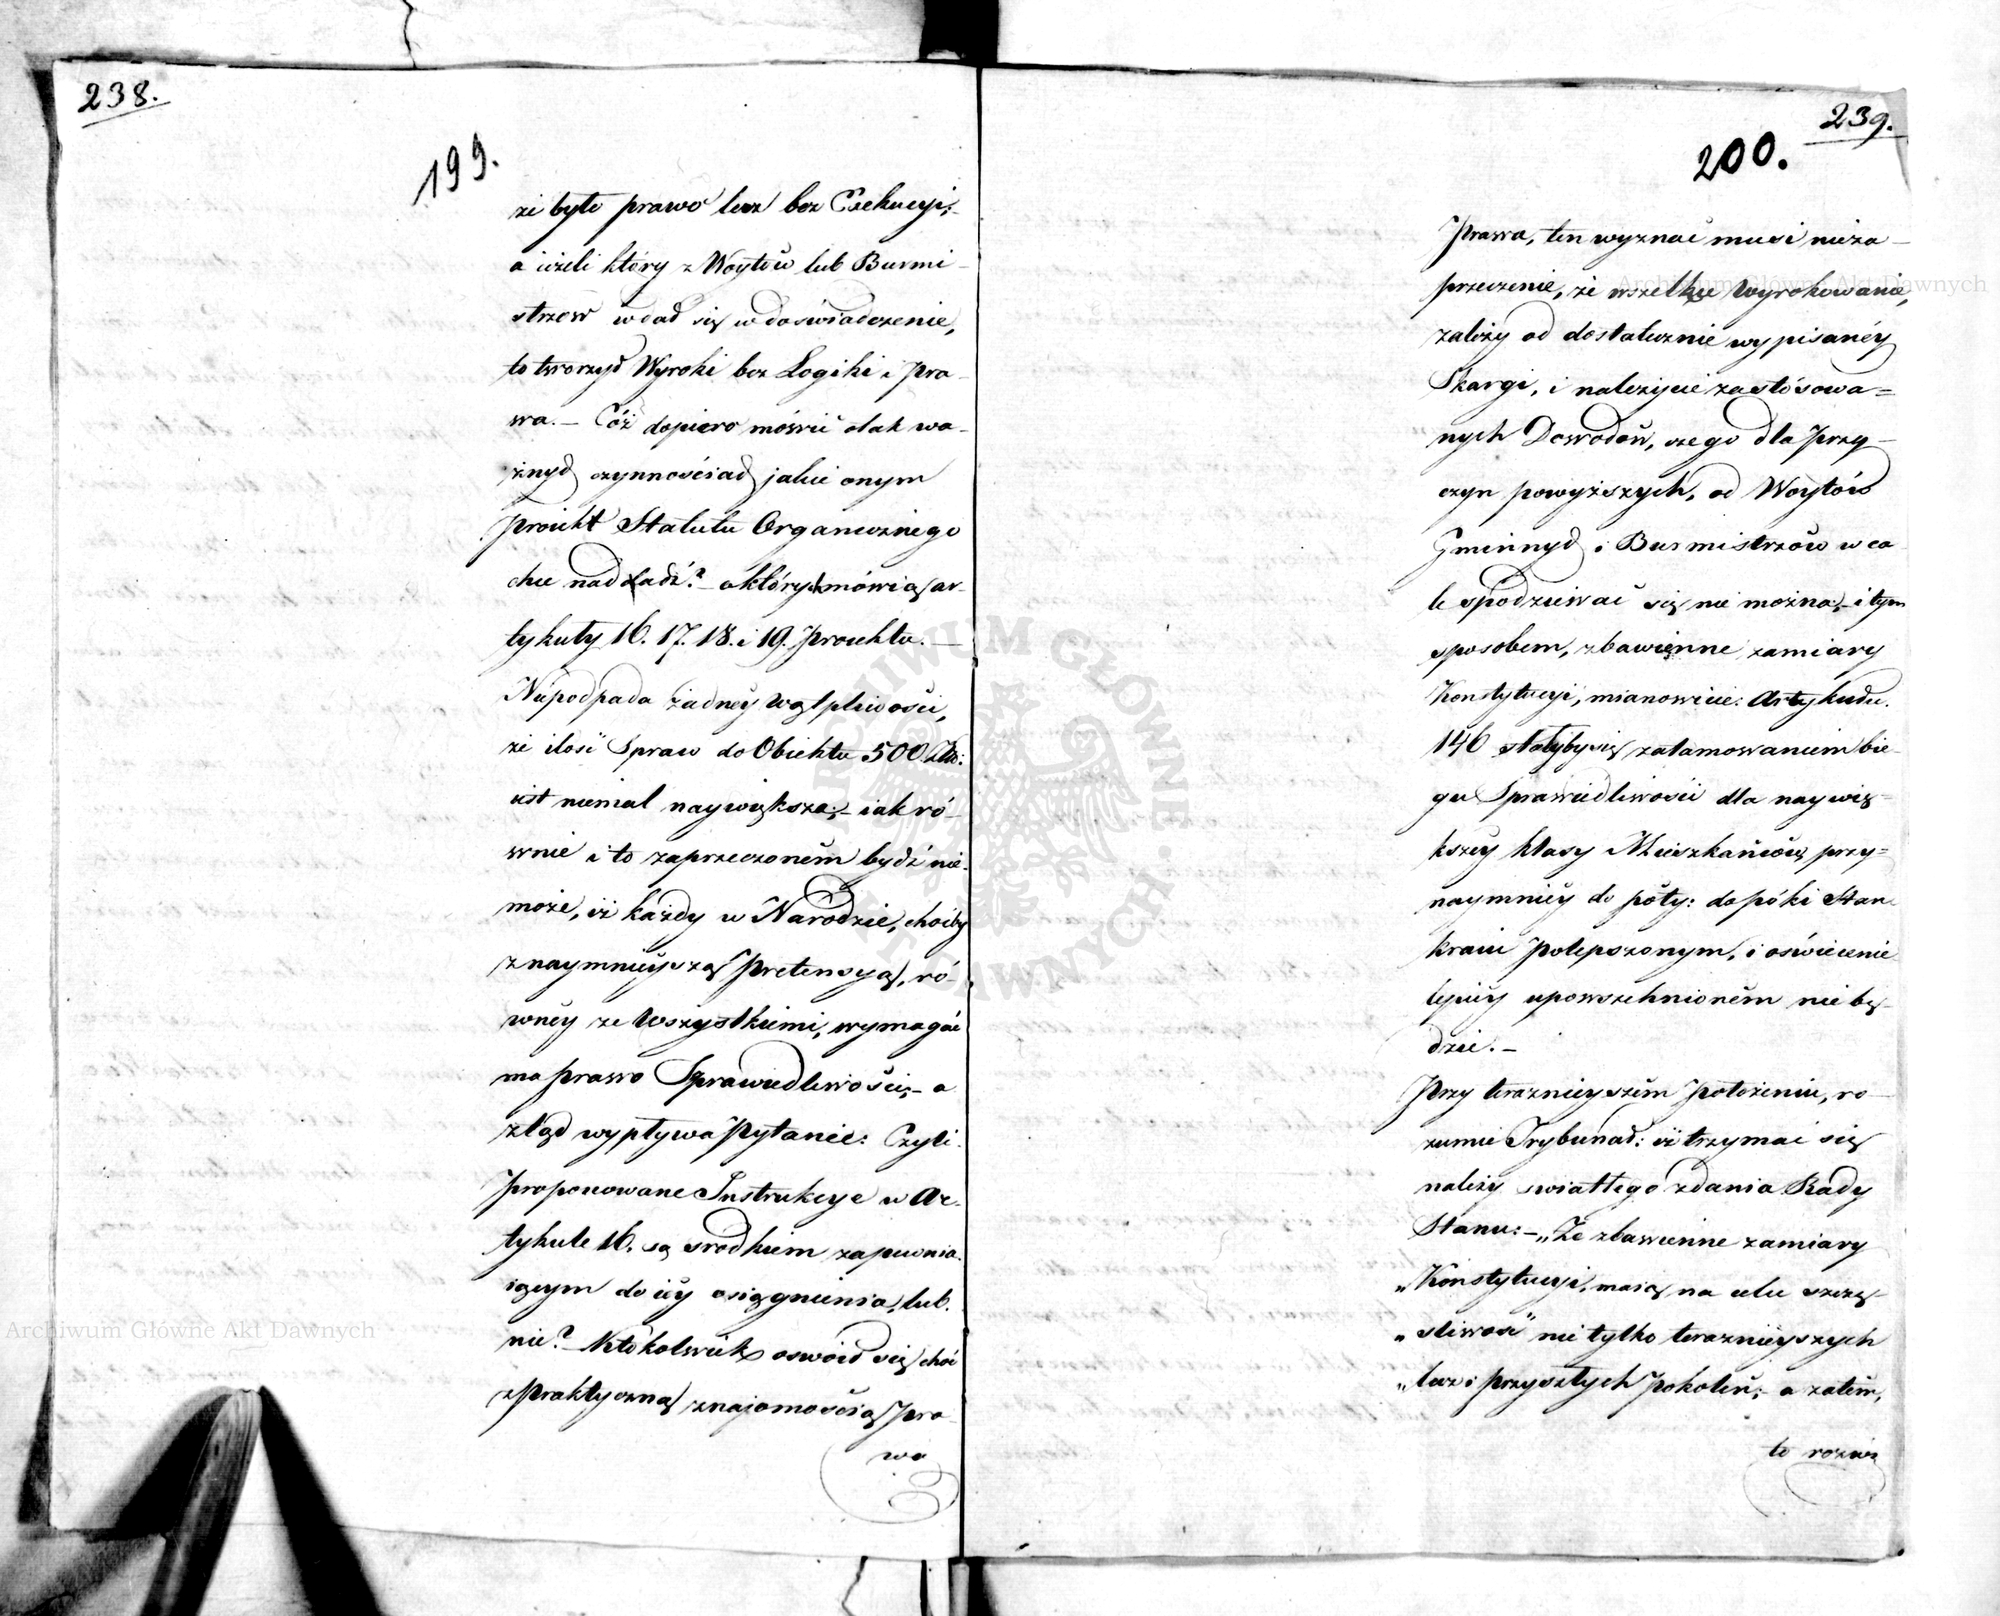 238.
199.
że było prawo lecz bez Exekucyi;-
a ieżeli który z Woytów lub Burmi-
strzow wdał się w doświadczenie,
to tworzył Wyroki bez Logiki i Pra-
wa.- Cóż dopiero mówić o tak wa-
żnych czynnościach jakie onym
Proiekt Statutu Organicznego
chce nadać?- o których mówią ar-
tykuły 16. 17. 18. i 19. Proiektu.-
Niepodpada żadney wątpliwości,
że ilość Spraw do Obiektu 500 Złt:
iest niemal naywiększa;- iak ró-
wnie i to zaprzeczoném bydź nie-
może, iż każdy w Narodzie, choćby
z naymnieyszą Pretensyą, ró-
wney ze Wszystkiemi, wymagać
ma prawo Sprawiedliwości;- a
ztąd wypływa Pytanie: Czyli
Proponowane Instrukcye w Ar-
tykule 16. są srodkiem zapewnia-
iącym do iéy osiągnienia, lub
nie?- Ktokolwiek oswoił się choć
z Praktyczną znajomością Pra-
wa
239.
200.
Prawa, ten wyznać musi nieza-
przeczenie, że wszelkie Wyrokowanie,
zależy od dostatecznie wypisanéy
Skargi, i należycie zastósowa=
nych Dowodów, czego dla Przy-
czyn powyższych, od Woytów
Gminnych i Burmistrzów wca-
le spodziewać się nie można;- i tym
sposobem, zbawienne zamiary
Konstytucyi, mianowicie: Artykułu
146 stałyby się zatamowaniem bie-
gu Sprawiedliwości dla naywię=
kszéy klasy Mieszkańców, przy=
naymniéy do póty: dopóki Stan
kraiu Polepszonym, i oświecenie
lepiéy upowszechnioném nie bę-
dzie.-
Przy terazniéyszém Położeniu, ro-
zumie Trybunał: iż trzymać się
należy swiatłego zdania Rady
Stanu:- „Że zbawienne zamiary
„Konstytucyi, maią na celu szczę-
„śliwość nie tylko terazniéyszych
„lecz i przyszłych Pokoleń;- a zatém,
to rozwi
Archiwum Główne Akt Dawnych
Archiwum Główne Akt Dawnych
ARCHIWUM GŁÓWNE AKT DAWNYCH